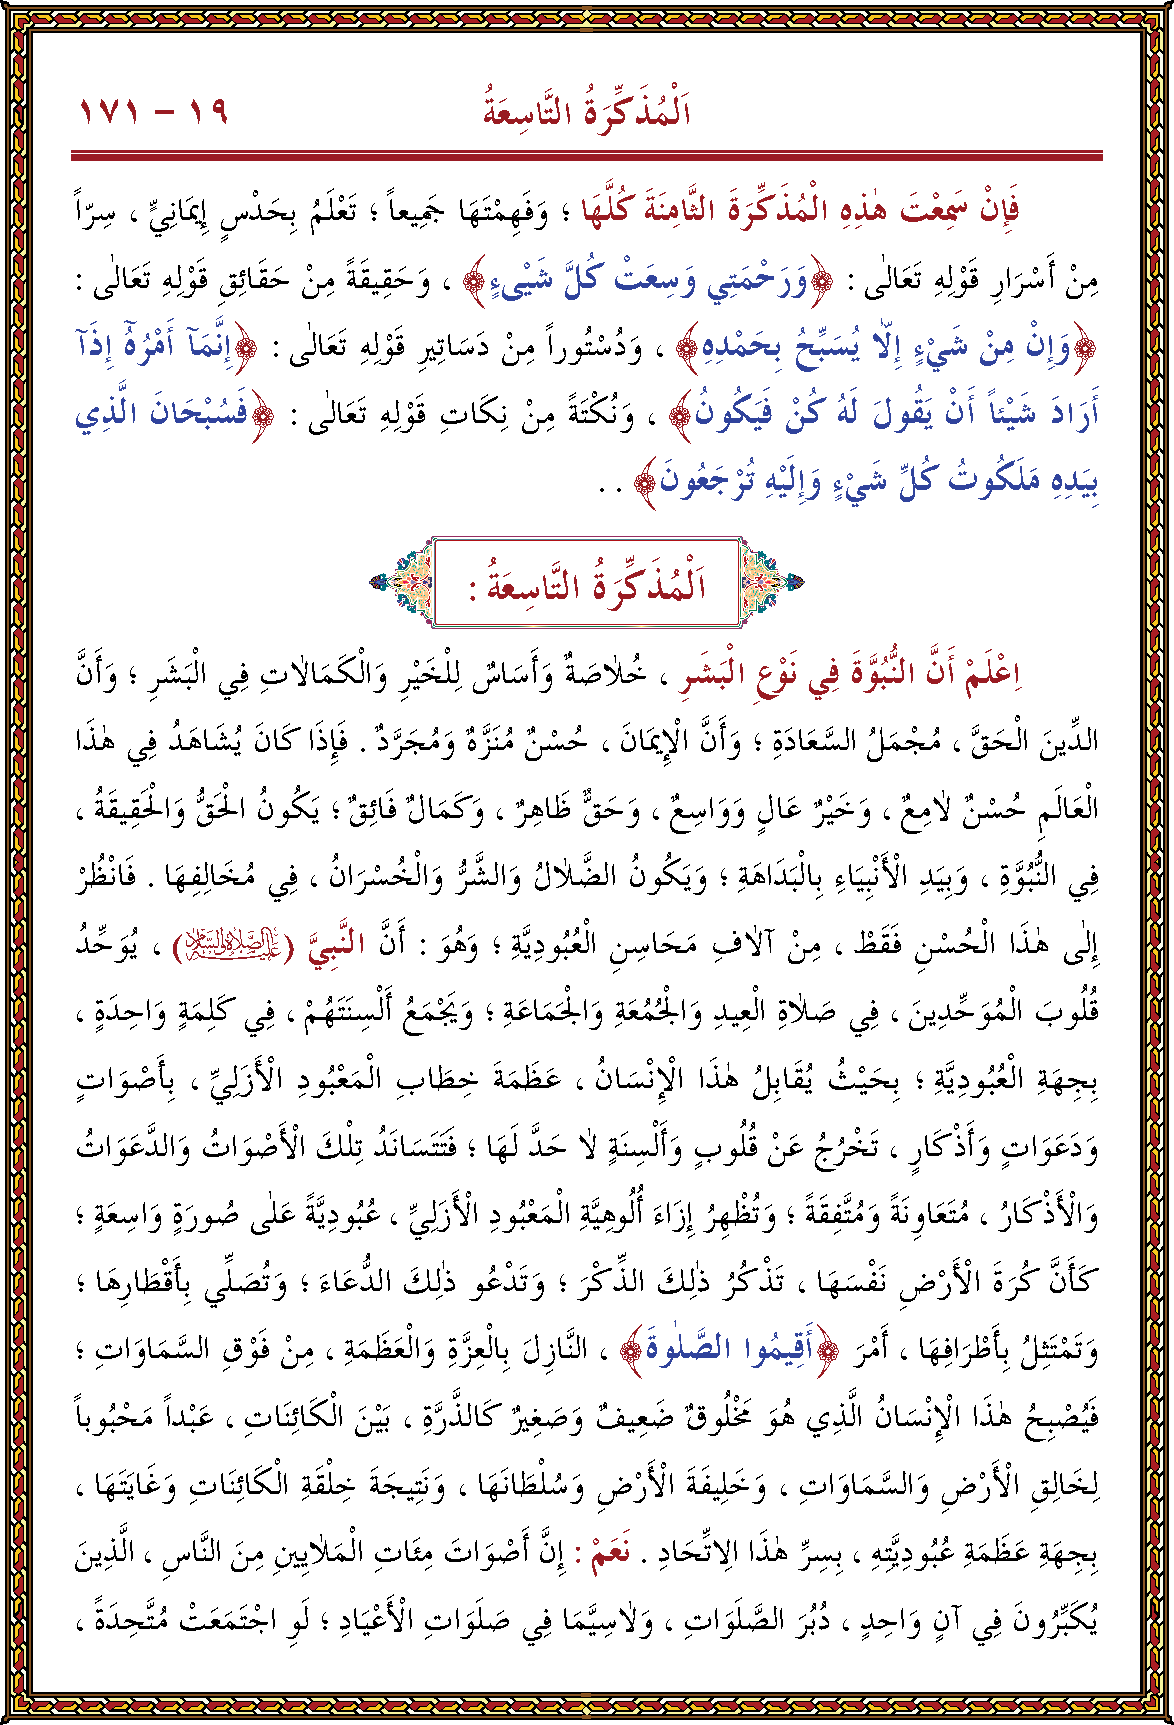 اَلْمُذَكِّرَةُ التَّاسِعَةُ ١٩ – ١٧١
فَإِنْ سَمِعْتَ هٰذِهِ الْمُذَكِّرَةَ الثَّامِنَةَ كُلَّهَا ؛ وَفَهِمْتَهَا جَمِيعاً ؛ تَعْلَمُ بِحَدْسٍ إِيمَانِيٍّ ، سِرّاً
مِنْ أَسْرَارِ قَوْلِهِ تَعَالٰى : ﴿وَرَحْمَتِي وَسِعَتْ كُلَّ شَيْىءٍ﴾ ، وَحَقِيقَةً مِنْ حَقَائِقِ قَوْلِهِ تَعَالٰى :
﴿وَإِنْ مِنْ شَيْءٍ إِلّاَ يُسَبِّحُ بِحَمْدِهِ﴾ ، وَدُسْتُوراً مِنْ دَسَاتِيرِ قَوْلِهِ تَعَالٰى : ﴿إِنَّمَآ أَمْرُهُٓ إِذَآ
أَرَادَ شَيْئاً أَنْ يَقُولَ لَهُ كُنْ فَيَكُونُ﴾ ، وَنُكْتَةً مِنْ نِكَاتِ قَوْلِهِ تَعَالٰى : ﴿فَسُبْحَانَ الَّذِي
بِيَدِهِ مَلَكُوتُ كُلِّ شَيْءٍ وَإِلَيْهِ تُرْجَعُونَ﴾ . .
اَلْمُذَكِّرَةُ التَّاسِعَةُ :
اِعْلَمْ أَنَّ النُّبُوَّةَ فِي نَوْعِ الْبَشَرِ ، خُلَاصَةٌ وَأَسَاسٌ لِلْخَيْرِ وَالْكَمَالَاتِ فِي الْبَشَرِ ؛ وَأَنَّ
الدِّينَ الْحَقَّ ، مُجْمَلُ السَّعَادَةِ ؛ وَأَنَّ الْإِيمَانَ ، حُسْنٌ مُنَزَّهٌ وَمُجَرَّدٌ . فَإِذَا كَانَ يُشَاهَدُ فِي هٰذَا
الْعَالَمِ حُسْنٌ لَامِعٌ ، وَخَيْرٌ عَالٍ وَوَاسِعٌ ، وَحَقٌّ ظَاهِرٌ ، وَكَمَالٌ فَائِقٌ ؛ يَكُونُ الْحَقُّ وَالْحَقِيقَةُ ،
فِي النُّبُوَّةِ ، وَبِيَدِ الْأَنْبِيَاءِ بِالْبَدَاهَةِ ؛ وَيَكُونُ الضَّلَالُ وَالشَّرُّ وَالْخُسْرَانُ ، فِي مُخَالِفِهَا . فَانْظُرْ
إِلٰى هٰذَا الْحُسْنِ فَقَطْ ، مِنْ آلَافِ مَحَاسِنِ الْعُبُودِيَّةِ ؛ وَهُوَ : أَنَّ النَّبِيَّ (عَلَيْهِ الصَّلَاةُ وَالسَّلَامُ) ، يُوَحِّدُ
قُلُوبَ الْمُوَحِّدِينَ ، فِي صَلَاةِ الْعِيدِ وَالْجُمُعَةِ وَالْجَمَاعَةِ ؛ وَيَجْمَعُ أَلْسِنَتَهُمْ ، فِي كَلِمَةٍ وَاحِدَةٍ ،
بِجِهَةِ الْعُبُودِيَّةِ ؛ بِحَيْثُ يُقَابِلُ هٰذَا الْإِنْسَانُ ، عَظَمَةَ خِطَابِ الْمَعْبُودِ الْأَزَلِيِّ ، بِأَصْوَاتٍ
وَدَعَوَاتٍ وَأَذْكَارٍ ، تَخْرُجُ عَنْ قُلُوبٍ وَأَلْسِنَةٍ لَا حَدَّ لَهَا ؛ فَتَتَسَانَدُ تِلْكَ الْأَصْوَاتُ وَالدَّعَوَاتُ
وَالْأَذْكَارُ ، مُتَعَاوِنَةً وَمُتَّفِقَةً ؛ وَتُظْهِرُ إِزَاءَ أُلُوهِيَّةِ الْمَعْبُودِ الْأَزَلِيِّ ، عُبُودِيَّةً عَلٰى صُورَةٍ وَاسِعَةٍ ؛
كَأَنَّ كُرَةَ الْأَرْضِ نَفْسَهَا ، تَذْكُرُ ذٰلِكَ الذِّكْرَ ؛ وَتَدْعُو ذٰلِكَ الدُّعَاءَ ؛ وَتُصَلِّي بِأَقْطَارِهَا ؛
وَتَمْتَثِلُ بِأَطْرَافِهَا ، أَمْرَ ﴿أَقِيمُوا الصَّلٰوةَ﴾ ، النَّازِلَ بِالْعِزَّةِ وَالْعَظَمَةِ ، مِنْ فَوْقِ السَّمَاوَاتِ ؛
فَيُصْبِحُ هٰذَا الْإِنْسَانُ الَّذِي هُوَ مَخْلُوقٌ ضَعِيفٌ وَصَغِيرٌ كَالذَّرَّةِ ، بَيْنَ الْكَائِنَاتِ ، عَبْداً مَحْبُوباً
لِخَالِقِ الْأَرْضِ وَالسَّمَاوَاتِ ، وَخَلِيفَةَ الْأَرْضِ وَسُلْطَانَهَا ، وَنَتِيجَةَ خِلْقَةِ الْكَائِنَاتِ وَغَايَتَهَا ،
بِجِهَةِ عَظَمَةِ عُبُودِيَّتِهِ ، بِسِرِّ هٰذَا الِاتِّحَادِ . نَعَمْ : إِنَّ أَصْوَاتَ مِئَاتِ الْمَلَايِينِ مِنَ النَّاسِ ، الَّذِينَ
يُكَبِّرُونَ فِي آنٍ وَاحِدٍ ، دُبُرَ الصَّلَوَاتِ ، وَلَاسِيَّمَا فِي صَلَوَاتِ الْأَعْيَادِ ؛ لَوِ اجْتَمَعَتْ مُتَّحِدَةً ،